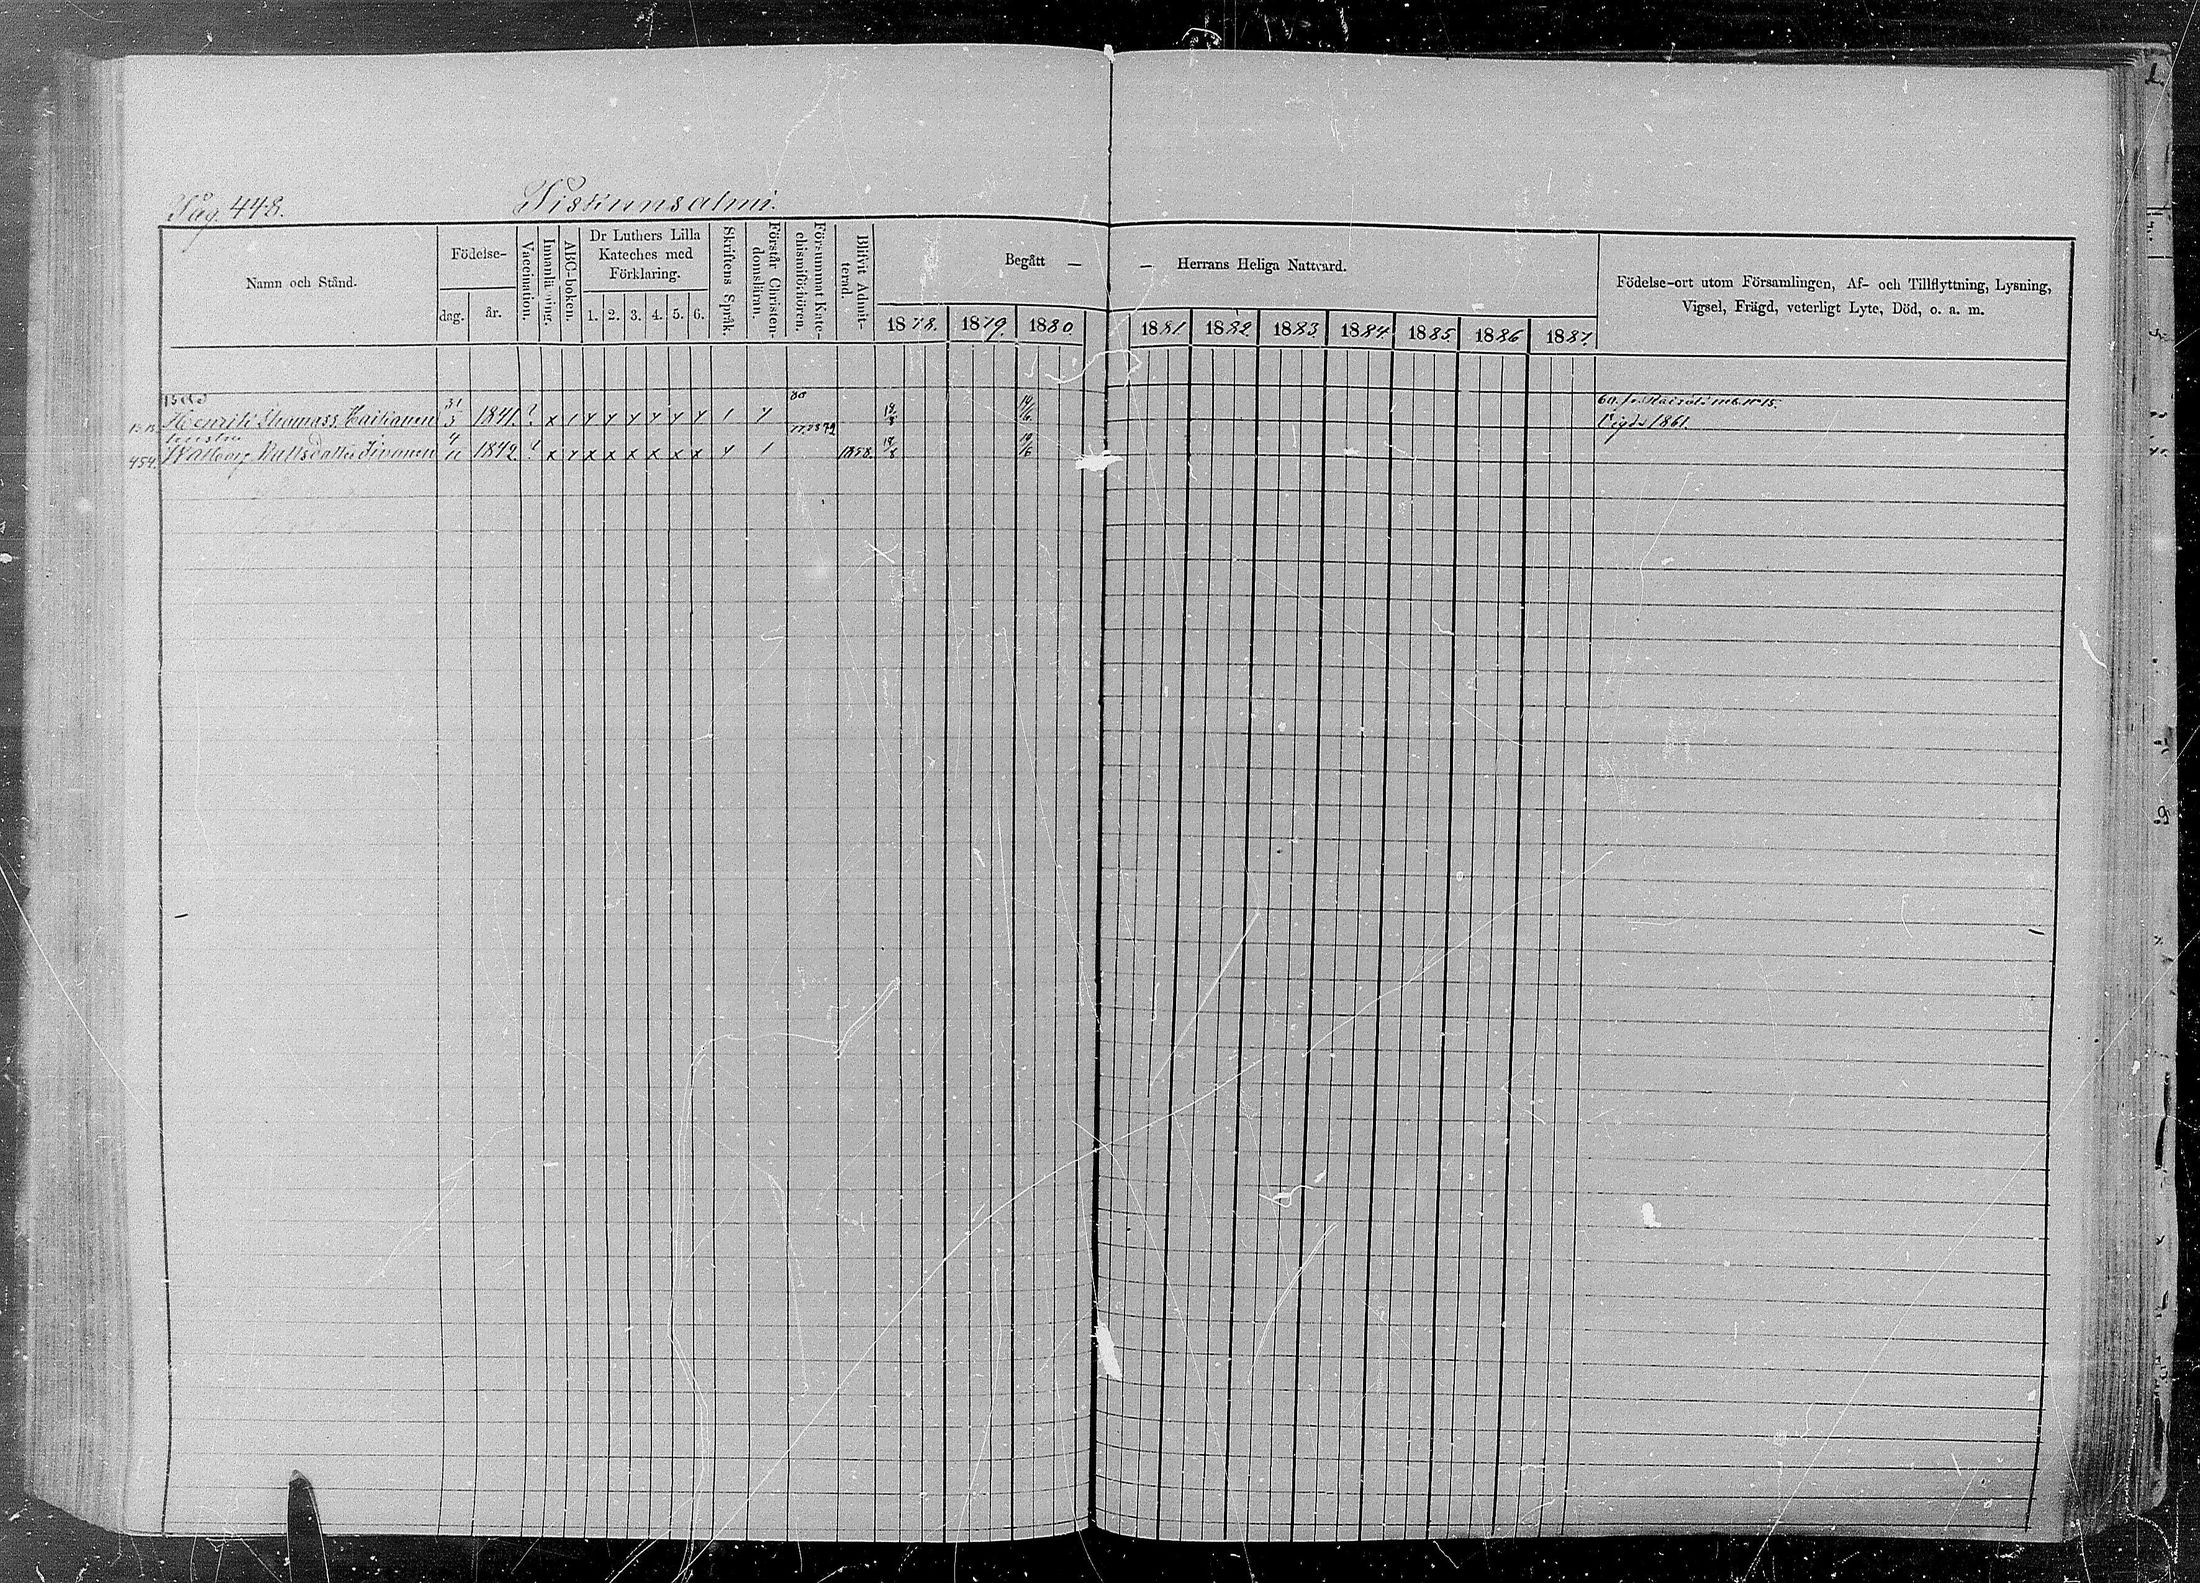 Pag. 448.
Tistinnsalmi.
Namn och Stånd.
Födelse-
dag.
år.
Vaccination.
Innanläsning.
ABC-boken.
Dr Luthers Lilla
Kateches med
Förklaring.
1. 2. 3. 4. 5. 6.
Skriftens Språk.
Förstår Christen-
domsläran.
Försummat Kate-
chismiförhören.
Blifvit Admit-
terad.
Begått —
1878. 1879. 1880
— Herrans Heliga Nattvard.
1881 1882 1883 1884 1885 1886 1887.
Födelse-ort utom Församlingen, Af- och Tillflyttning, Lysning,
Vigsel, Frägd, veterligt Lyte, Död, o. a. m.
Henrik Thomass. Haikonen 31/3 1841. ? x 1 y y y y y y 1 y 80 18/8 19/6
Vigds 1861.
hustru
454. Walborg Mattsdotter 4/11 1842 ? x y x x x x x x y 1 1858. 18/8 19/6